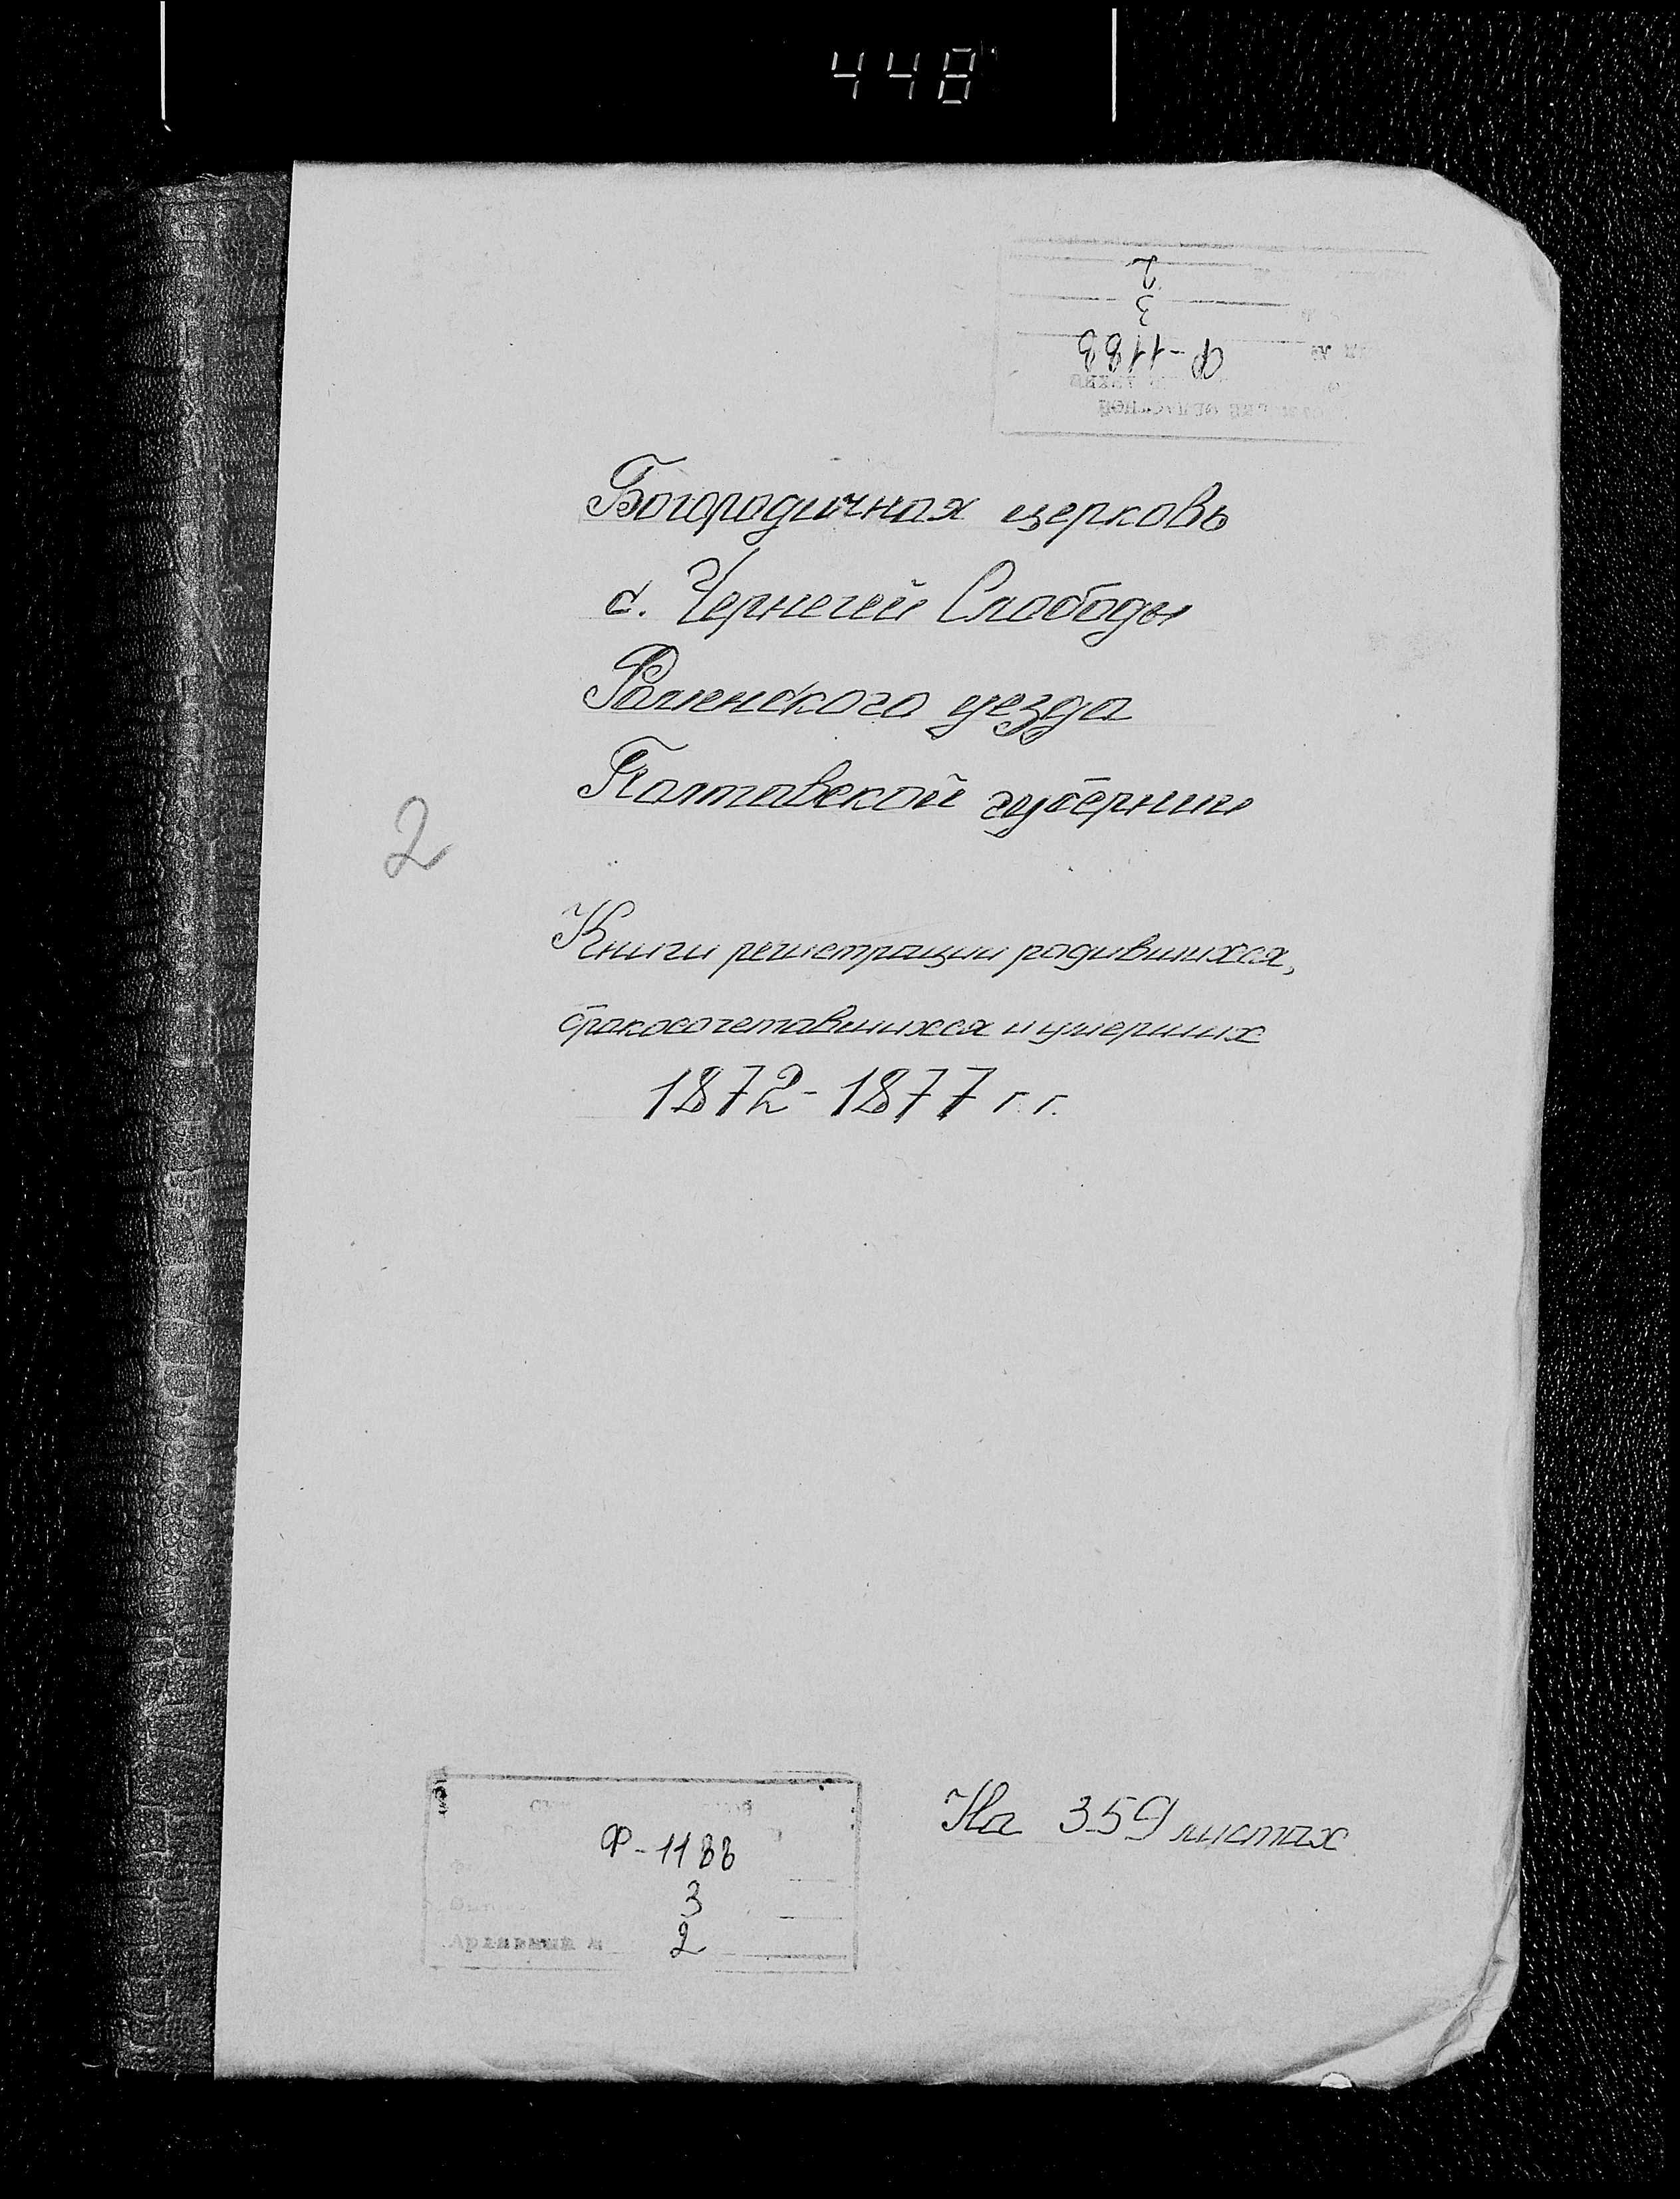 448
2
3
Ф-1188
Богородичная церковь
с. Чернечей Слободы
Роменского уезда
Полтавской губернии
2
Книги регистрации родившихся,
бракосочетавшихся и умерших
1872-1877 г.г.
На 359 листах
Ф-1188
3
Архивный №
2